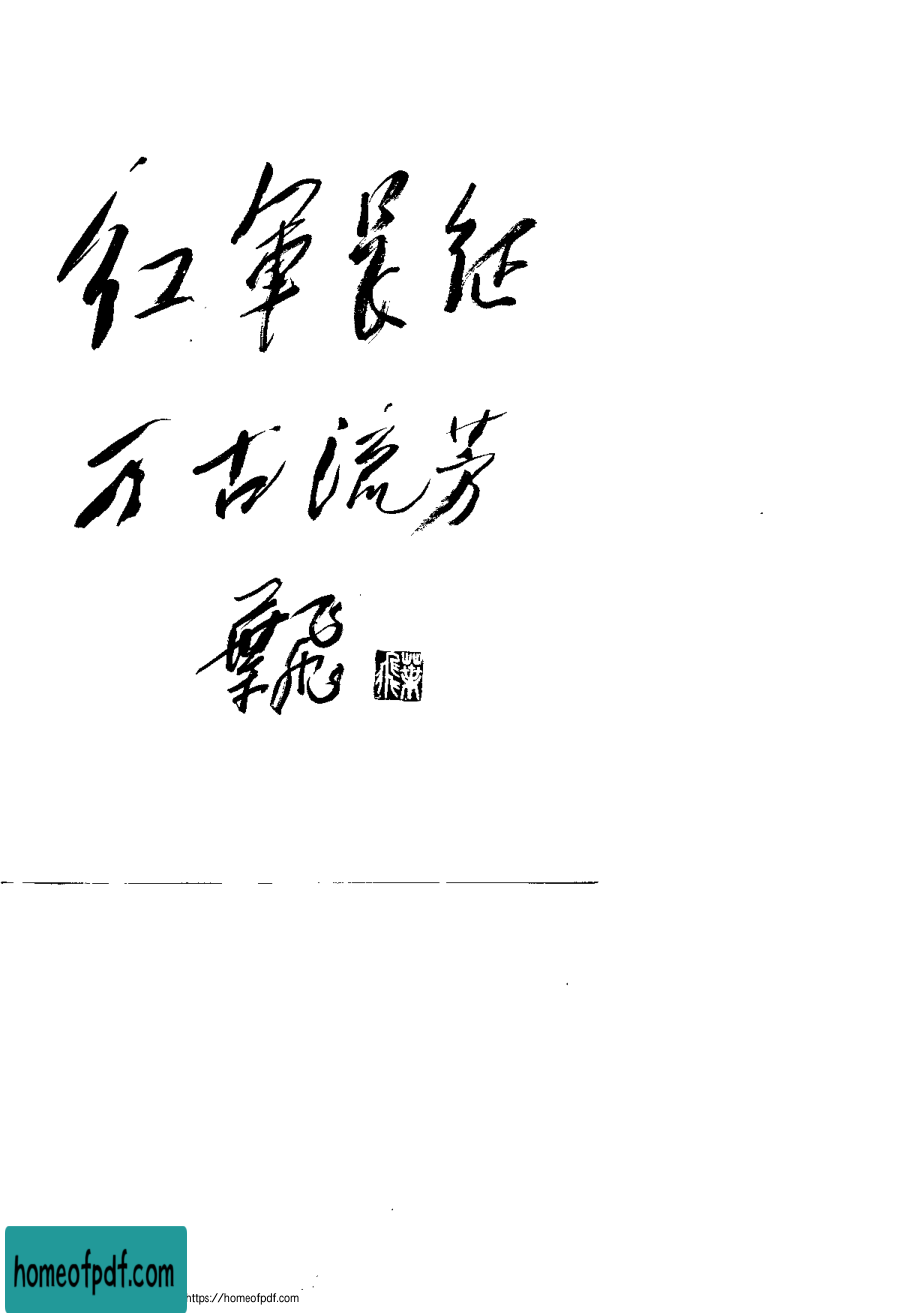 红軍長征
万古流芳
葉飛
葉飛
homeofpdf.com
https://homeofpdf.com